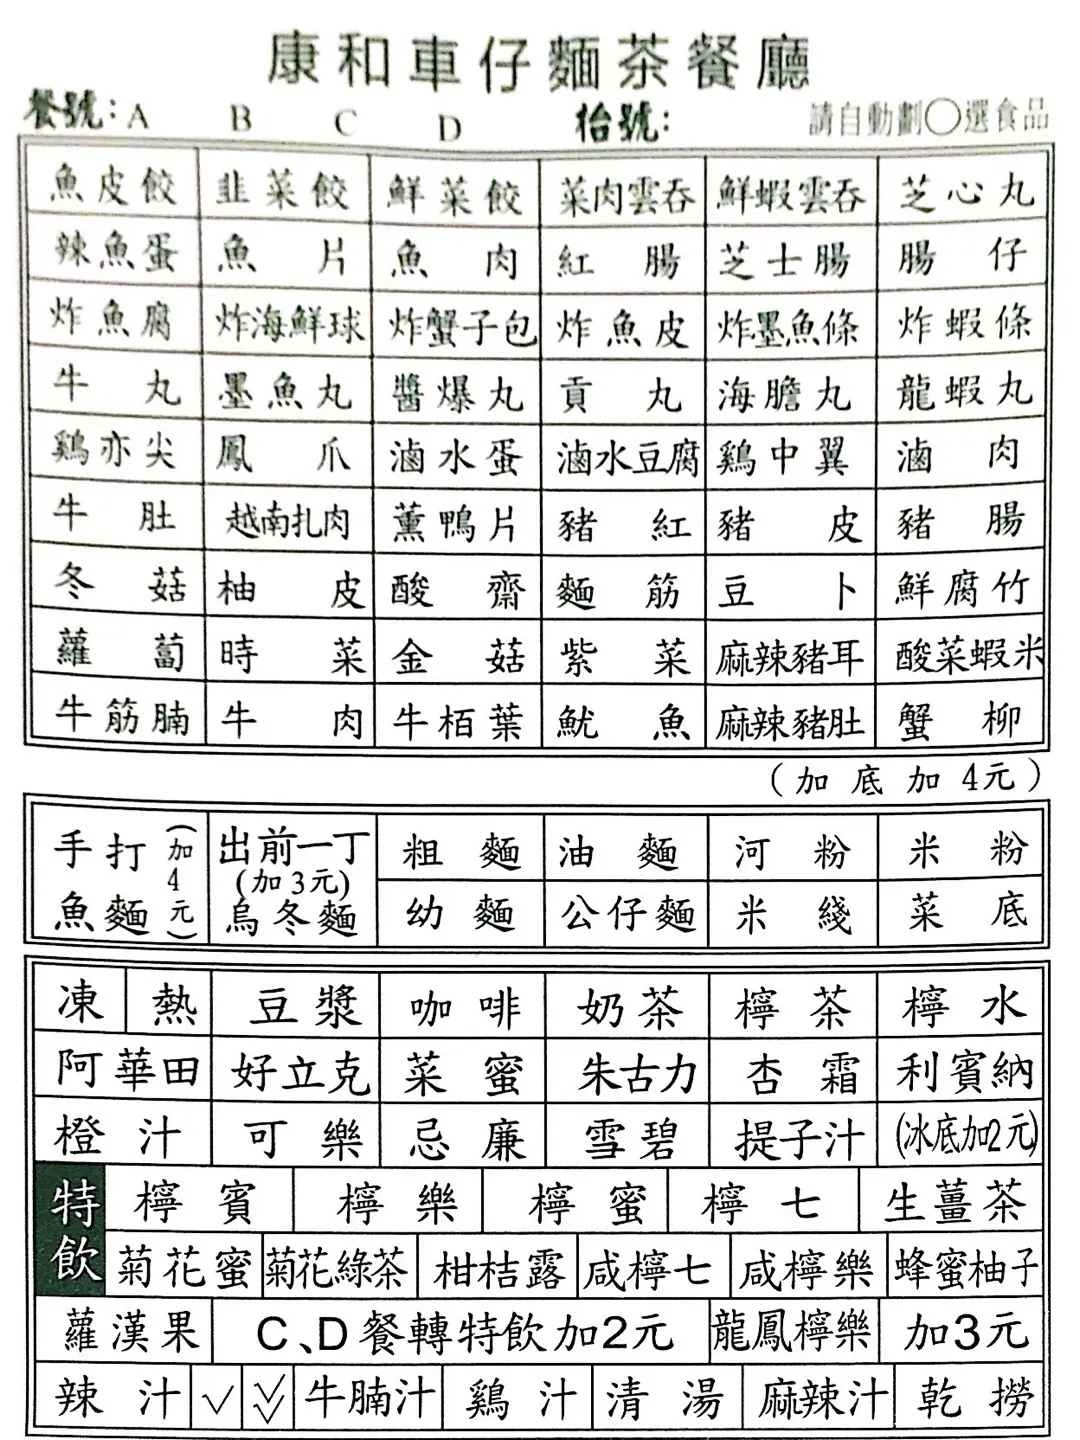 康和車仔麵茶餐廳
餐號：A B C D 枱號： 請自動劃○選食品
魚皮餃 韭菜餃 鮮菜餃 菜肉雲吞 鮮蝦雲吞 芝心丸
辣魚蛋 魚片 魚肉 紅腸 芝士腸 腸仔
炸魚腐 炸海鮮球 炸蟹子包 炸魚皮 炸墨魚條 炸蝦條
牛丸 墨魚丸 醬爆丸 貢丸 海膽丸 龍蝦丸
鷄亦尖 鳳爪 滷水蛋 滷水豆腐 鷄中翼 滷肉
牛肚 越南扎肉 薰鴨片 豬紅 豬皮 豬腸
冬菇 柚皮 酸齋 麵筋 豆卜 鮮腐竹
蘿蔔 時菜 金菇 紫菜 麻辣豬耳 酸菜蝦米
牛筋腩 牛肉 牛栢葉 魷魚 麻辣豬肚 蟹柳
（加底加4元）
手打魚麵（加4元） 出前一丁（加3元）烏冬麵 粗麵 油麵 河粉 米粉
幼麵 公仔麵 米綫 菜底
凍 熱 豆漿 咖啡 奶茶 檸茶 檸水
阿華田 好立克 菜蜜 朱古力 杏霜 利賓納
橙汁 可樂 忌廉 雪碧 提子汁 (冰底加2元)
特飲 檸賓 檸樂 檸蜜 檸七 生薑茶
菊花蜜 菊花綠茶 柑桔露 咸檸七 咸檸樂 蜂蜜柚子
蘿漢果 C、D餐轉特飲加2元 龍鳳檸樂 加3元
辣汁 ✓ ✓✓ 牛腩汁 鷄汁 清湯 麻辣汁 乾撈